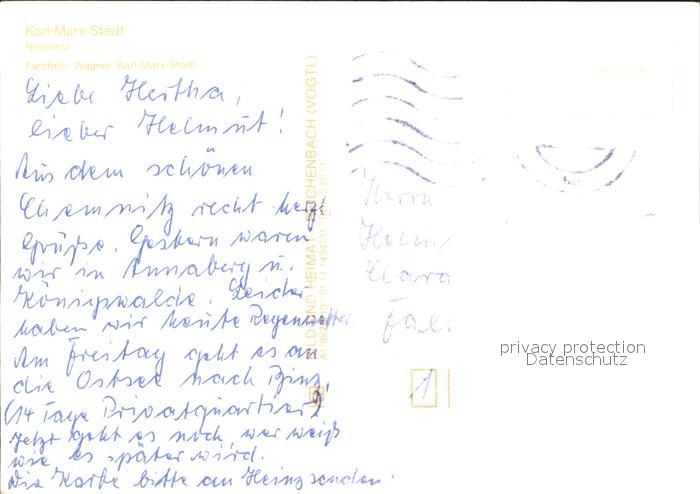 Karl-Marx-Stadt
Rosenhof
Farbfoto: Wagner, Karl-Marx-Stadt
Liebe Hertha,
lieber Helmut!
Aus dem schönen
Chemnitz recht herzl.
Grüße. Gestern waren
wir in Annaberg u.
Königswalde. Leider
haben wir heute Regenwetter.
Am Freitag geht es an
die Ostsee nach Binz,
(14 Tage Privatquartier)
Jetzt geht es noch, wer weiß
wie es später wird.
Die Karte bitte an Heinz senden.
BILD UND HEIMAT REICHENBACH (VOGTL)
Herrn
Helm
Clara
Fal
1
privacy protection
Datenschutz